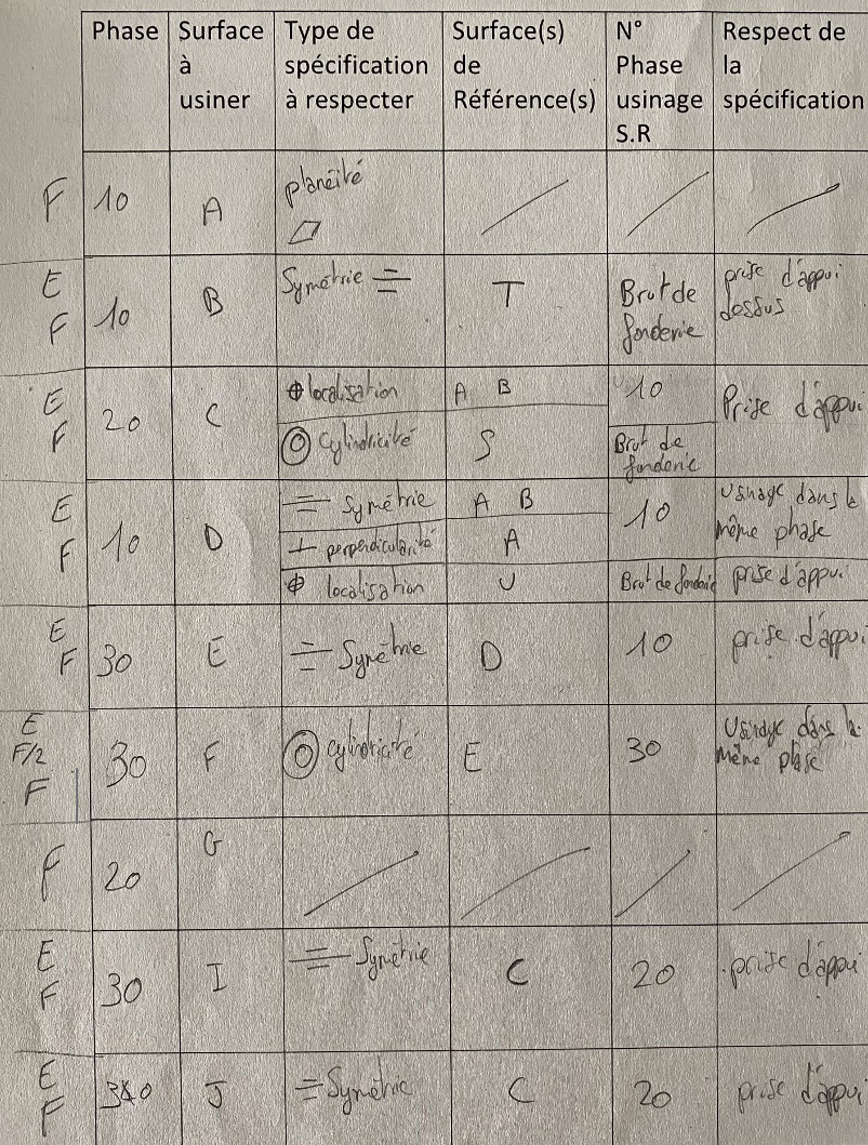 Phase Surface à usiner Type de spécification à respecter Surface(s) de Référence(s) N° Phase usinage S.R Respect de la spécification
F 10 A planéité ⏥
E F 10 B Symétrie ⌯ T Brut de fonderie prise d'appui dessus
E F 20 C ⌖ localisation A B 10 Prise d'appui
◎ Cylindricité S Brut de fonderie
E F 10 D ⌯ Symétrie A B 10 Usinage dans la même phase
⊥ perpendicularité A
⌖ localisation U Brut de fonderie prise d'appui
E F 30 E ⌯ Symétrie D 10 prise d'appui
E F/2 F 30 F ◎ Cylindricité E 30 Usinage dans la même phase
F 20 G
E F 30 I ⌯ Symétrie C 20 prise d'appui
E F J ⌯ Symétrie C 20 prise d'appui